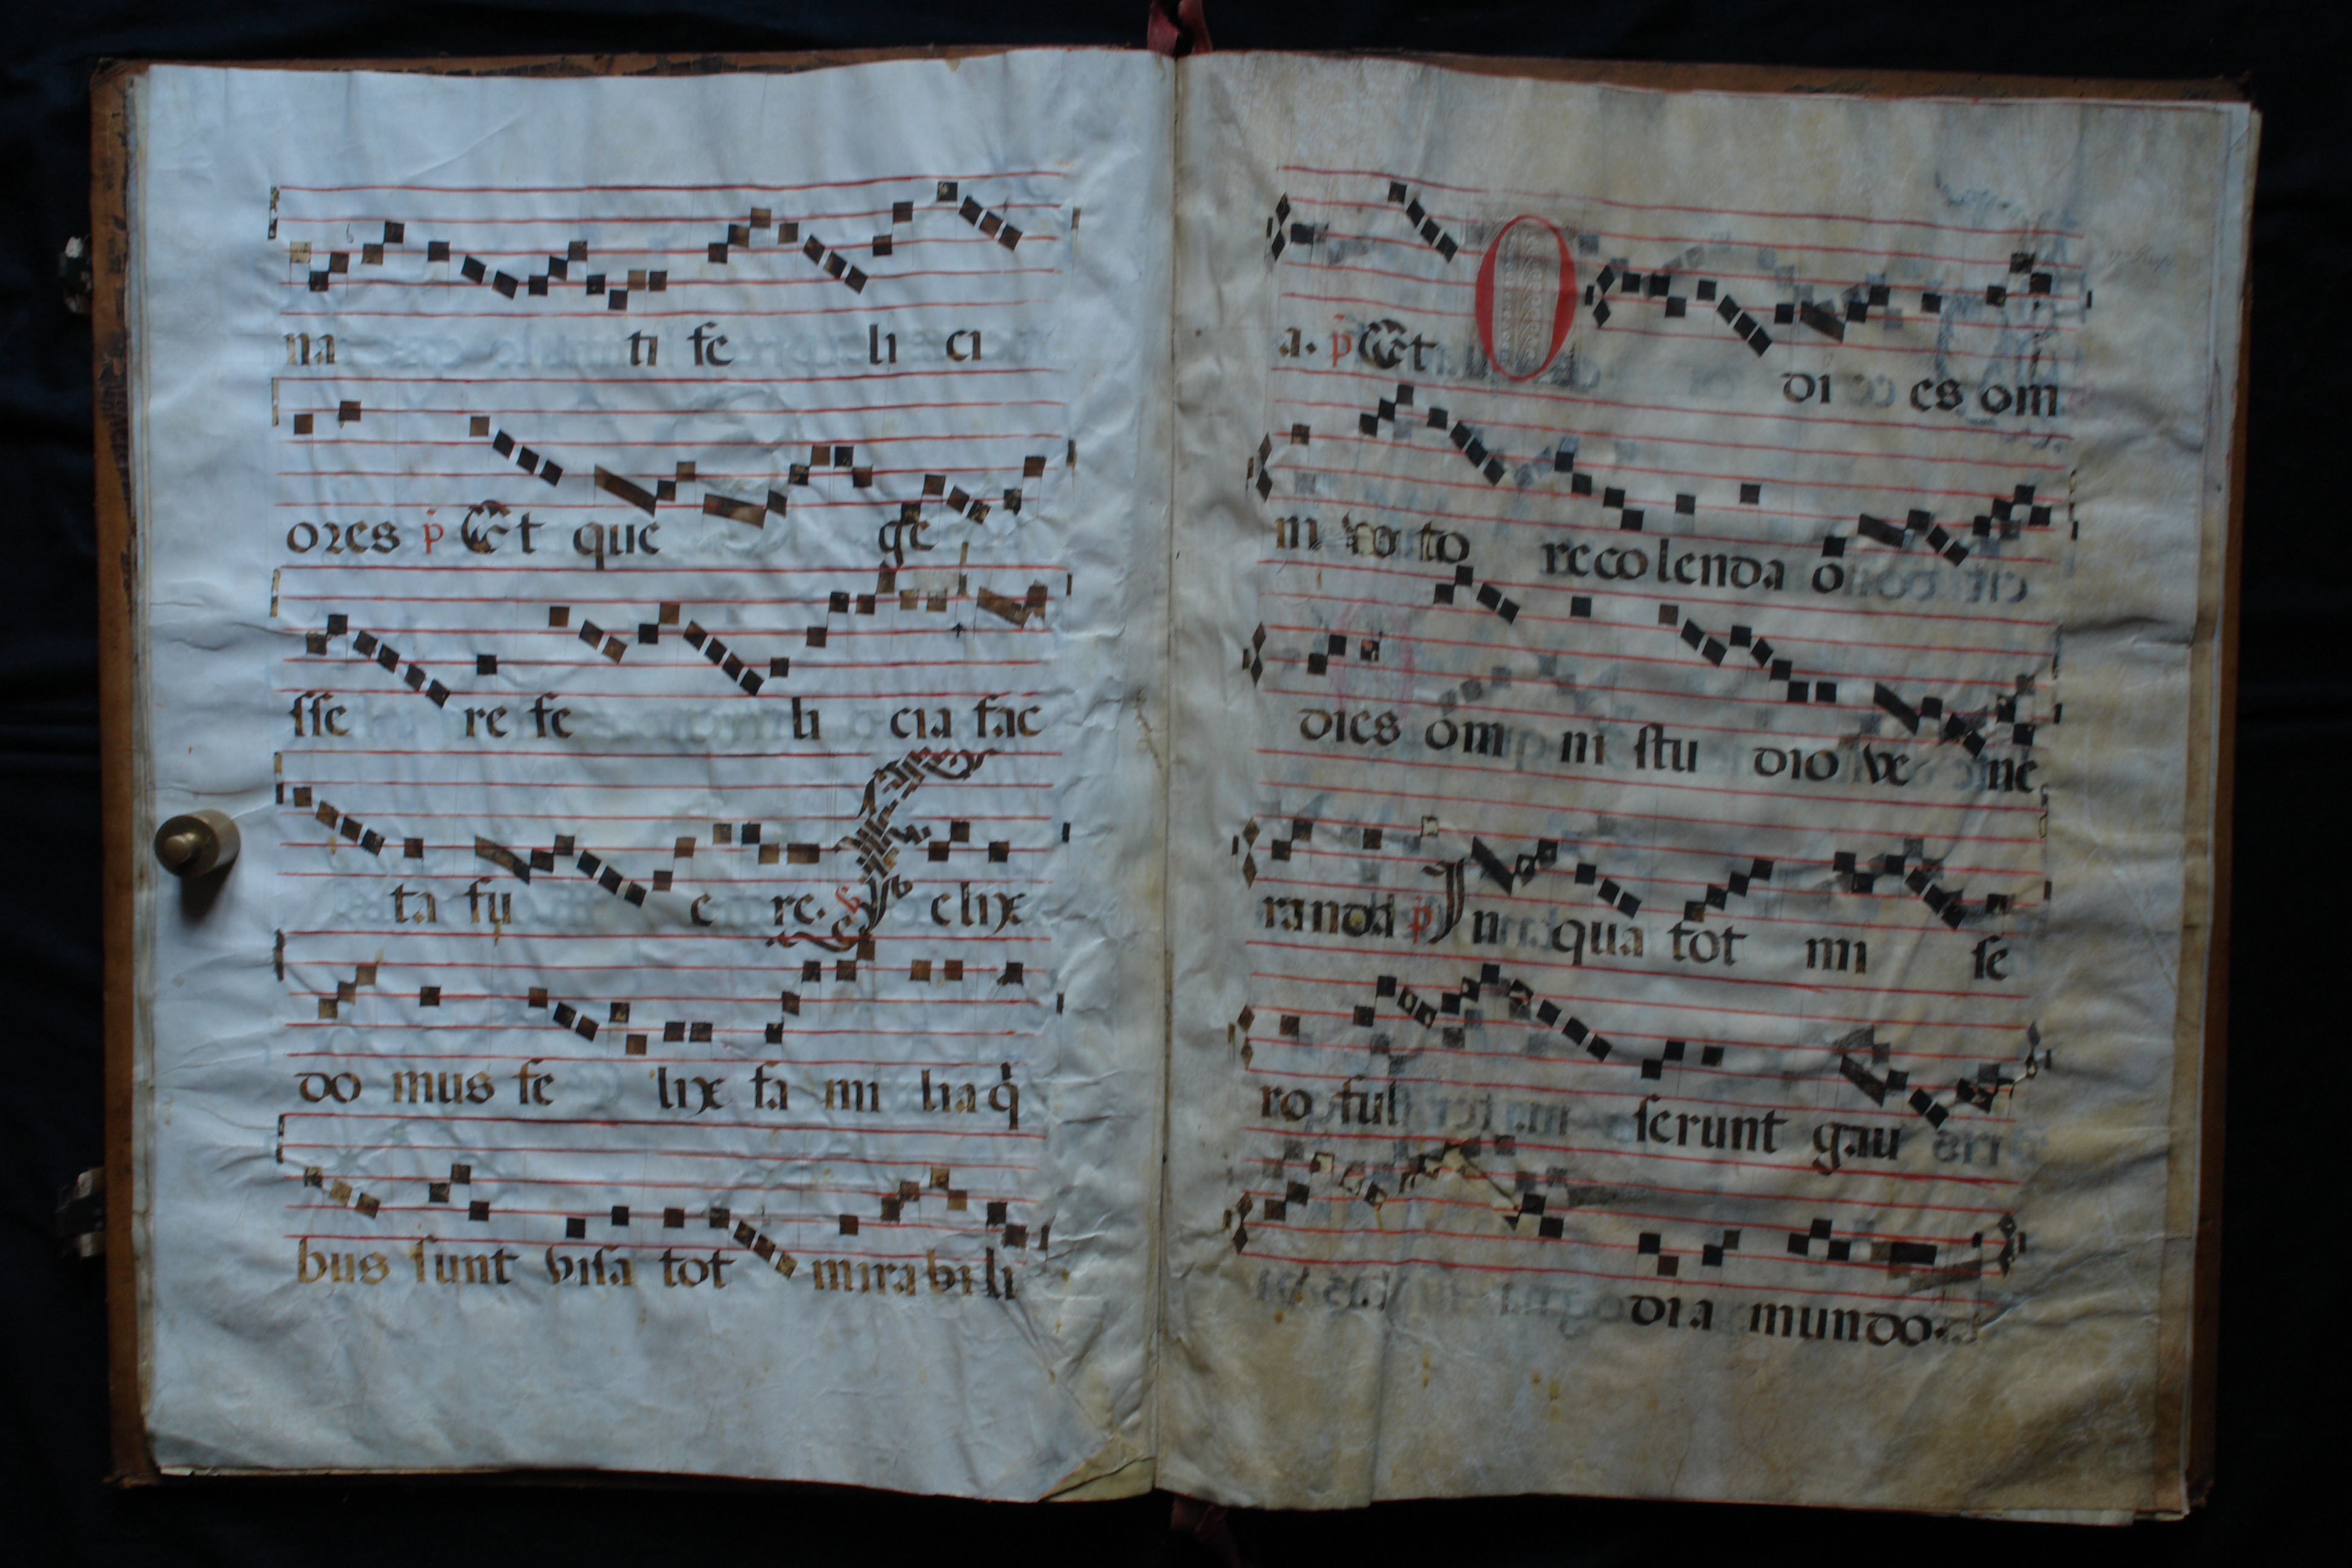 na ti fe li ci
ores p̄ Et que ge
sse re fe li cia fac
ta fu e re. Felix
do mus fe lix fa mi lia q̄
bus sunt visa tot mirabili
a. p̄ Et O di es om
ni vo to recolenda o
dies om ni stu dio ve ne
randa p̄ In qua tot mi se
ro ful serunt gau
dia mundo.